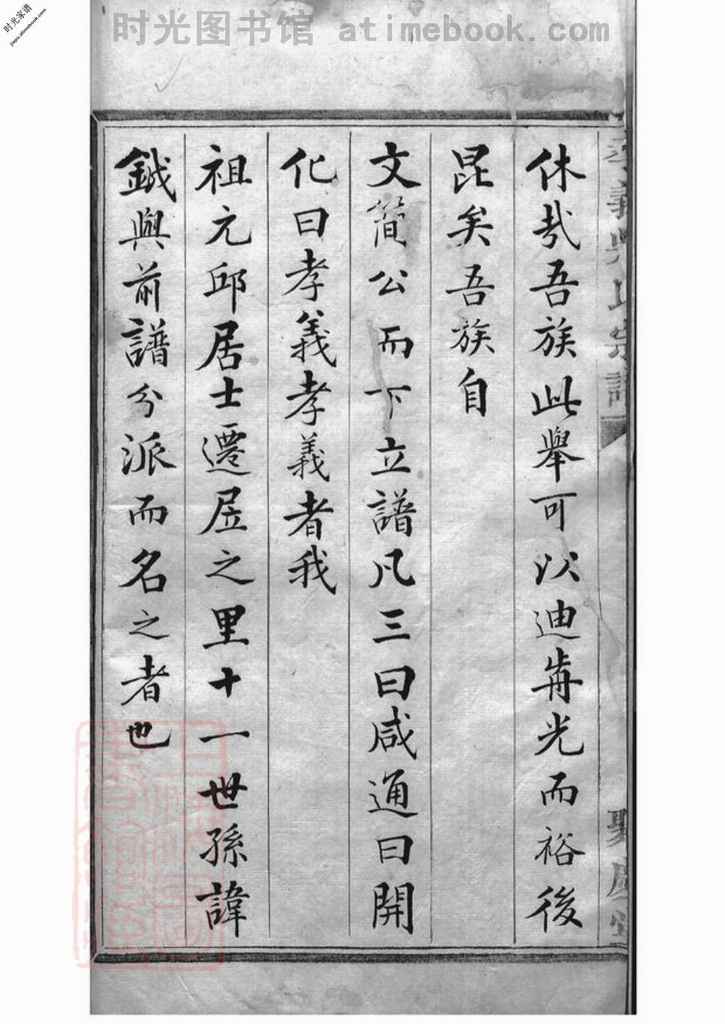 时光图书馆 atimebook.com
时光家谱
休哉吾族此舉可以迪前光而裕後
昆矣吾族自
文簡公而下立譜凡三曰咸通曰開
化曰孝義孝義者我
祖元邱居士遷居之里十一世孫諱
鉞與前譜分派而名之者也
孝義吳氏宗譜